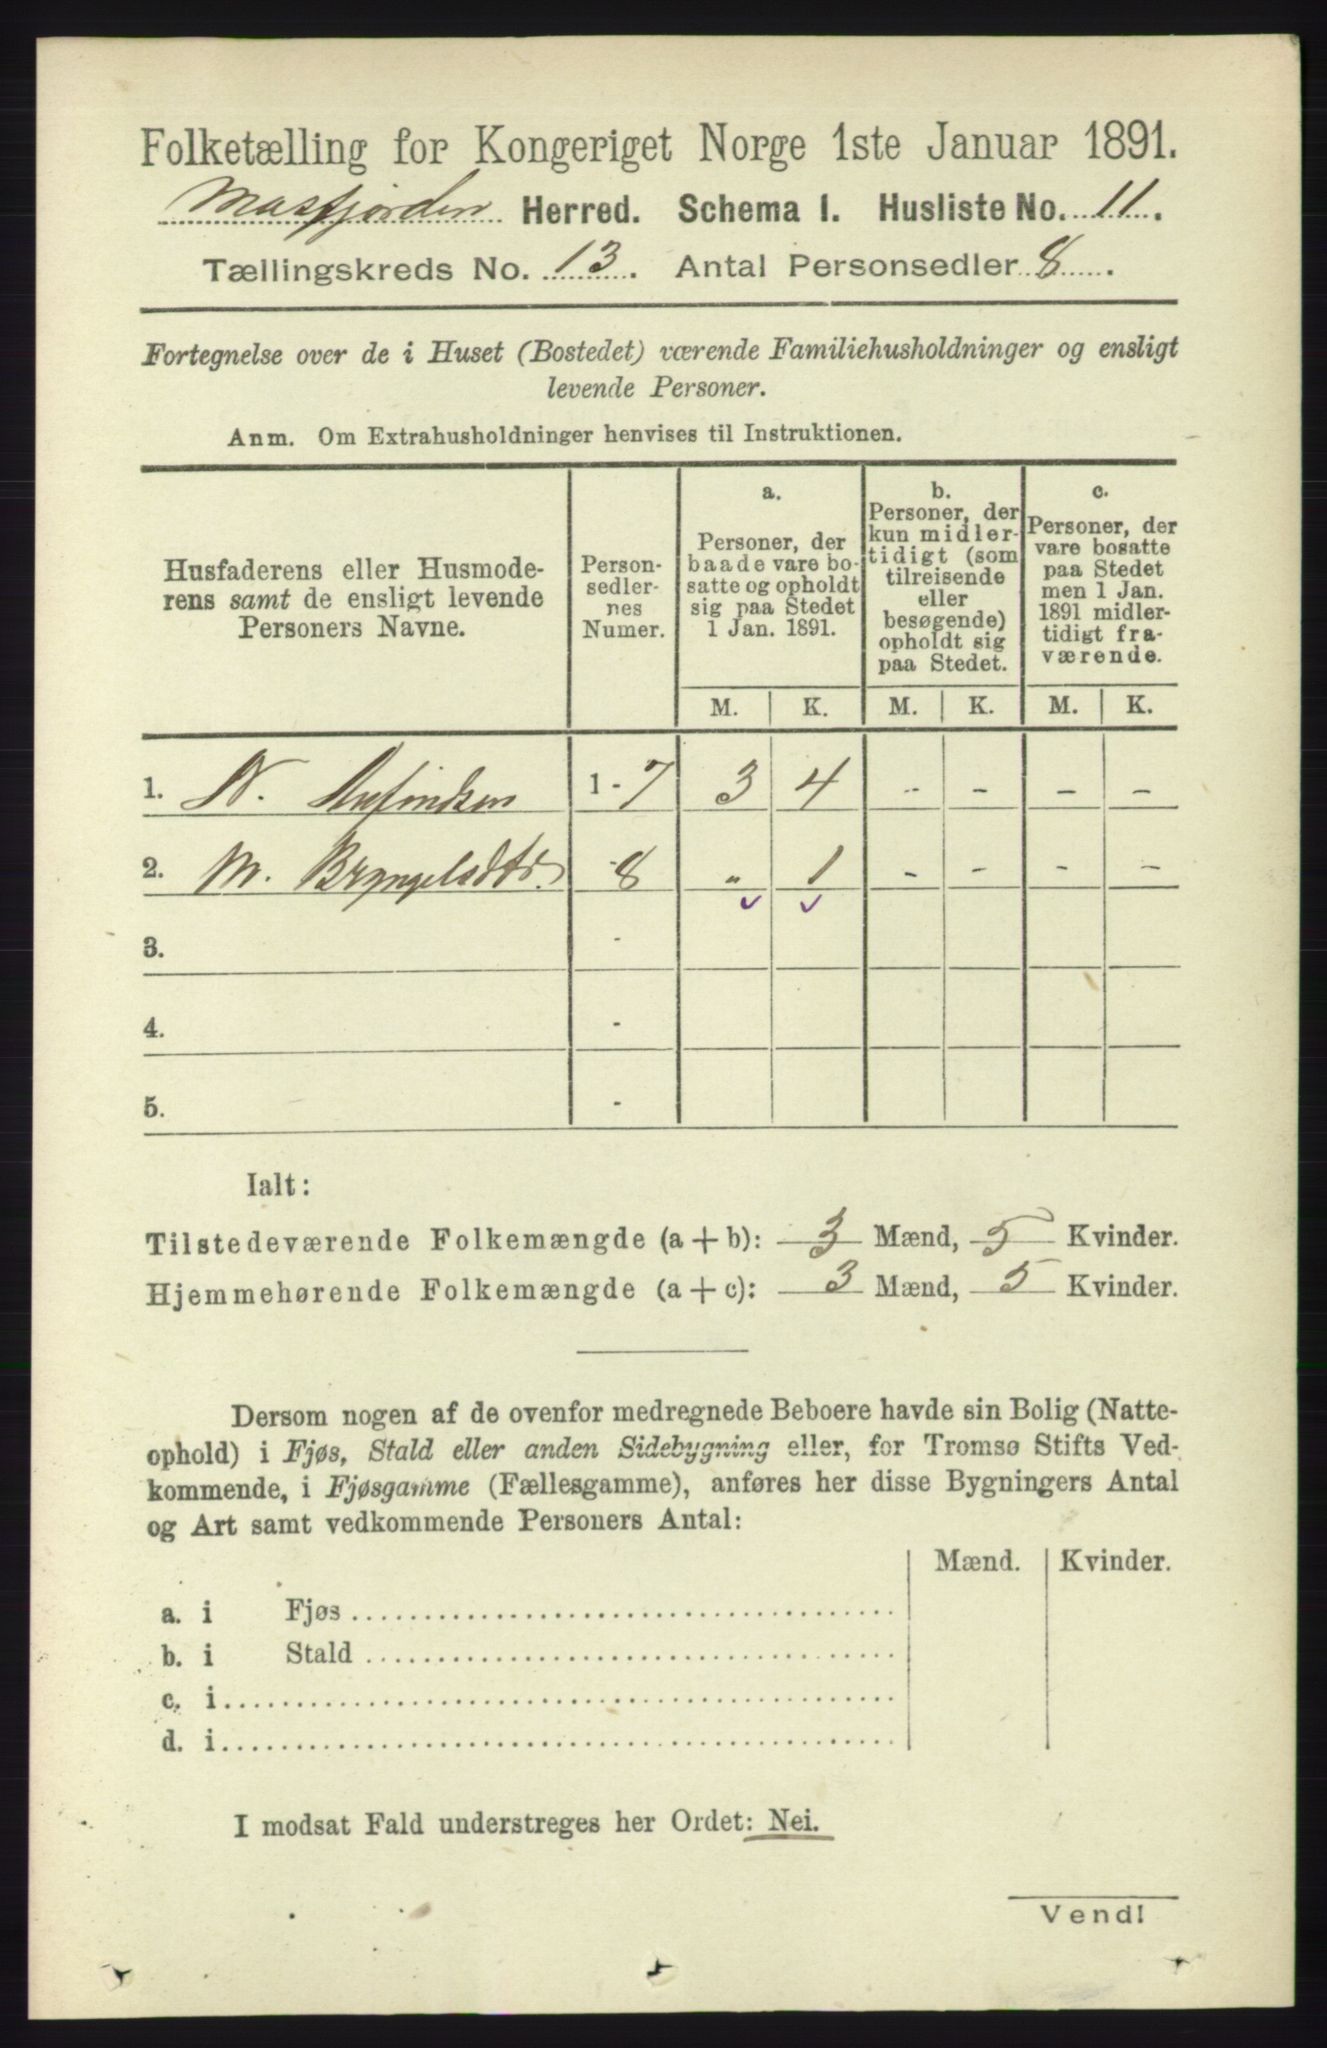 Folketælling for Kongeriget Norge 1ste Januar 1891.
Masfjorden Herred. Schema I. Husliste No. 11.
Tællingskreds No. 13. Antal Personsedler 8.
Fortegnelse over de i Huset (Bostedet) værende Familiehusholdninger og ensligt
levende Personer.
Anm. Om Extrahusholdninger henvises til Instruktionen.
Husfaderens eller Husmode-
rens samt de ensligt levende
Personers Navne.
Person-
sedler-
nes
Numer.
a.
Personer, der
baade vare bo-
satte og opholdt
sig paa Stedet
1 Jan. 1891.
b.
Personer, der
kun midler-
tidigt (som
tilreisende
eller
besøgende)
opholdt sig
paa Stedet.
c.
Personer, der
vare bosatte
paa Stedet
men 1 Jan.
1891 midler-
tidigt fra-
værende.
M. K. M. K. M. K.
1. N. Anfindsen 1-7 3 4 - - - -
2. M. Bryngelsdtr. -8 " 1 - - - -
3. -
4. -
5. -
Ialt:
Tilstedeværende Folkemængde (a + b): 3 Mænd, 5 Kvinder.
Hjemmehørende Folkemængde (a + c): 3 Mænd, 5 Kvinder.
Dersom nogen af de ovenfor medregnede Beboere havde sin Bolig (Natte-
ophold) i Fjøs, Stald eller anden Sidebygning eller, for Tromsø Stifts Ved-
kommende, i Fjøsgamme (Fællesgamme), anføres her disse Bygningers Antal
og Art samt vedkommende Personers Antal:
Mænd. Kvinder.
a. i Fjøs
b. i Stald
c. i
d. i
I modsat Fald understreges her Ordet: Nei.
Vend!